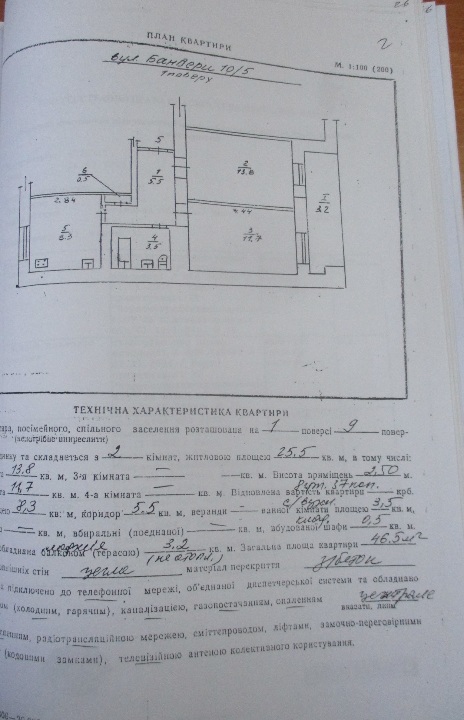 2
ПЛАН КВАРТИРИ
М. 1:100 (200)
вул. Бандери 10/5
1 поверх
5
6
0.5
1
5.5
2
13.8
I
3.2
2.84
4.44
5
8.3
4
3.5
3
11.7
ТЕХНІЧНА ХАРАКТЕРИСТИКА КВАРТИРИ
посімейного, спільного заселення розташована на 1 поверсі 9 повер-
(непотрібне викреслити)
динку та складається з 2 кімнат, житловою площею 25.5 кв. м, в тому числі:
13.8 кв. м, 3-я кімната — кв. м. Висота приміщень 2.50 м.
11,7 кв. м. 4-а кімната — кв. м. Відновлова вартість квартири крб.
8,3 кв. м, коридор 5.5 кв. м, веранди - ванної кімнати площею 3,5 кв. м,
— кв. м, вбиральні (поєднаної) — кв. м, вбудованої шафи 0,5 кв. м.
обладнана балконом (терасою) 3.2 кв. м. Загальна площа квартири 46.5 м²
(не отопл.)
стін цегла матеріал перекриття з/бетон
підключено до телефонної мережі, об'єднаної диспетчерської системи та обладнано
(холодним, гарячим), каналізацією, газопостачанням, опаленням
вказати, яким
радіотрансляційною мережею, сміттєпроводом, ліфтами, замочно-переговорними
(кодовими замками), телевізійною антеною колективного користування.